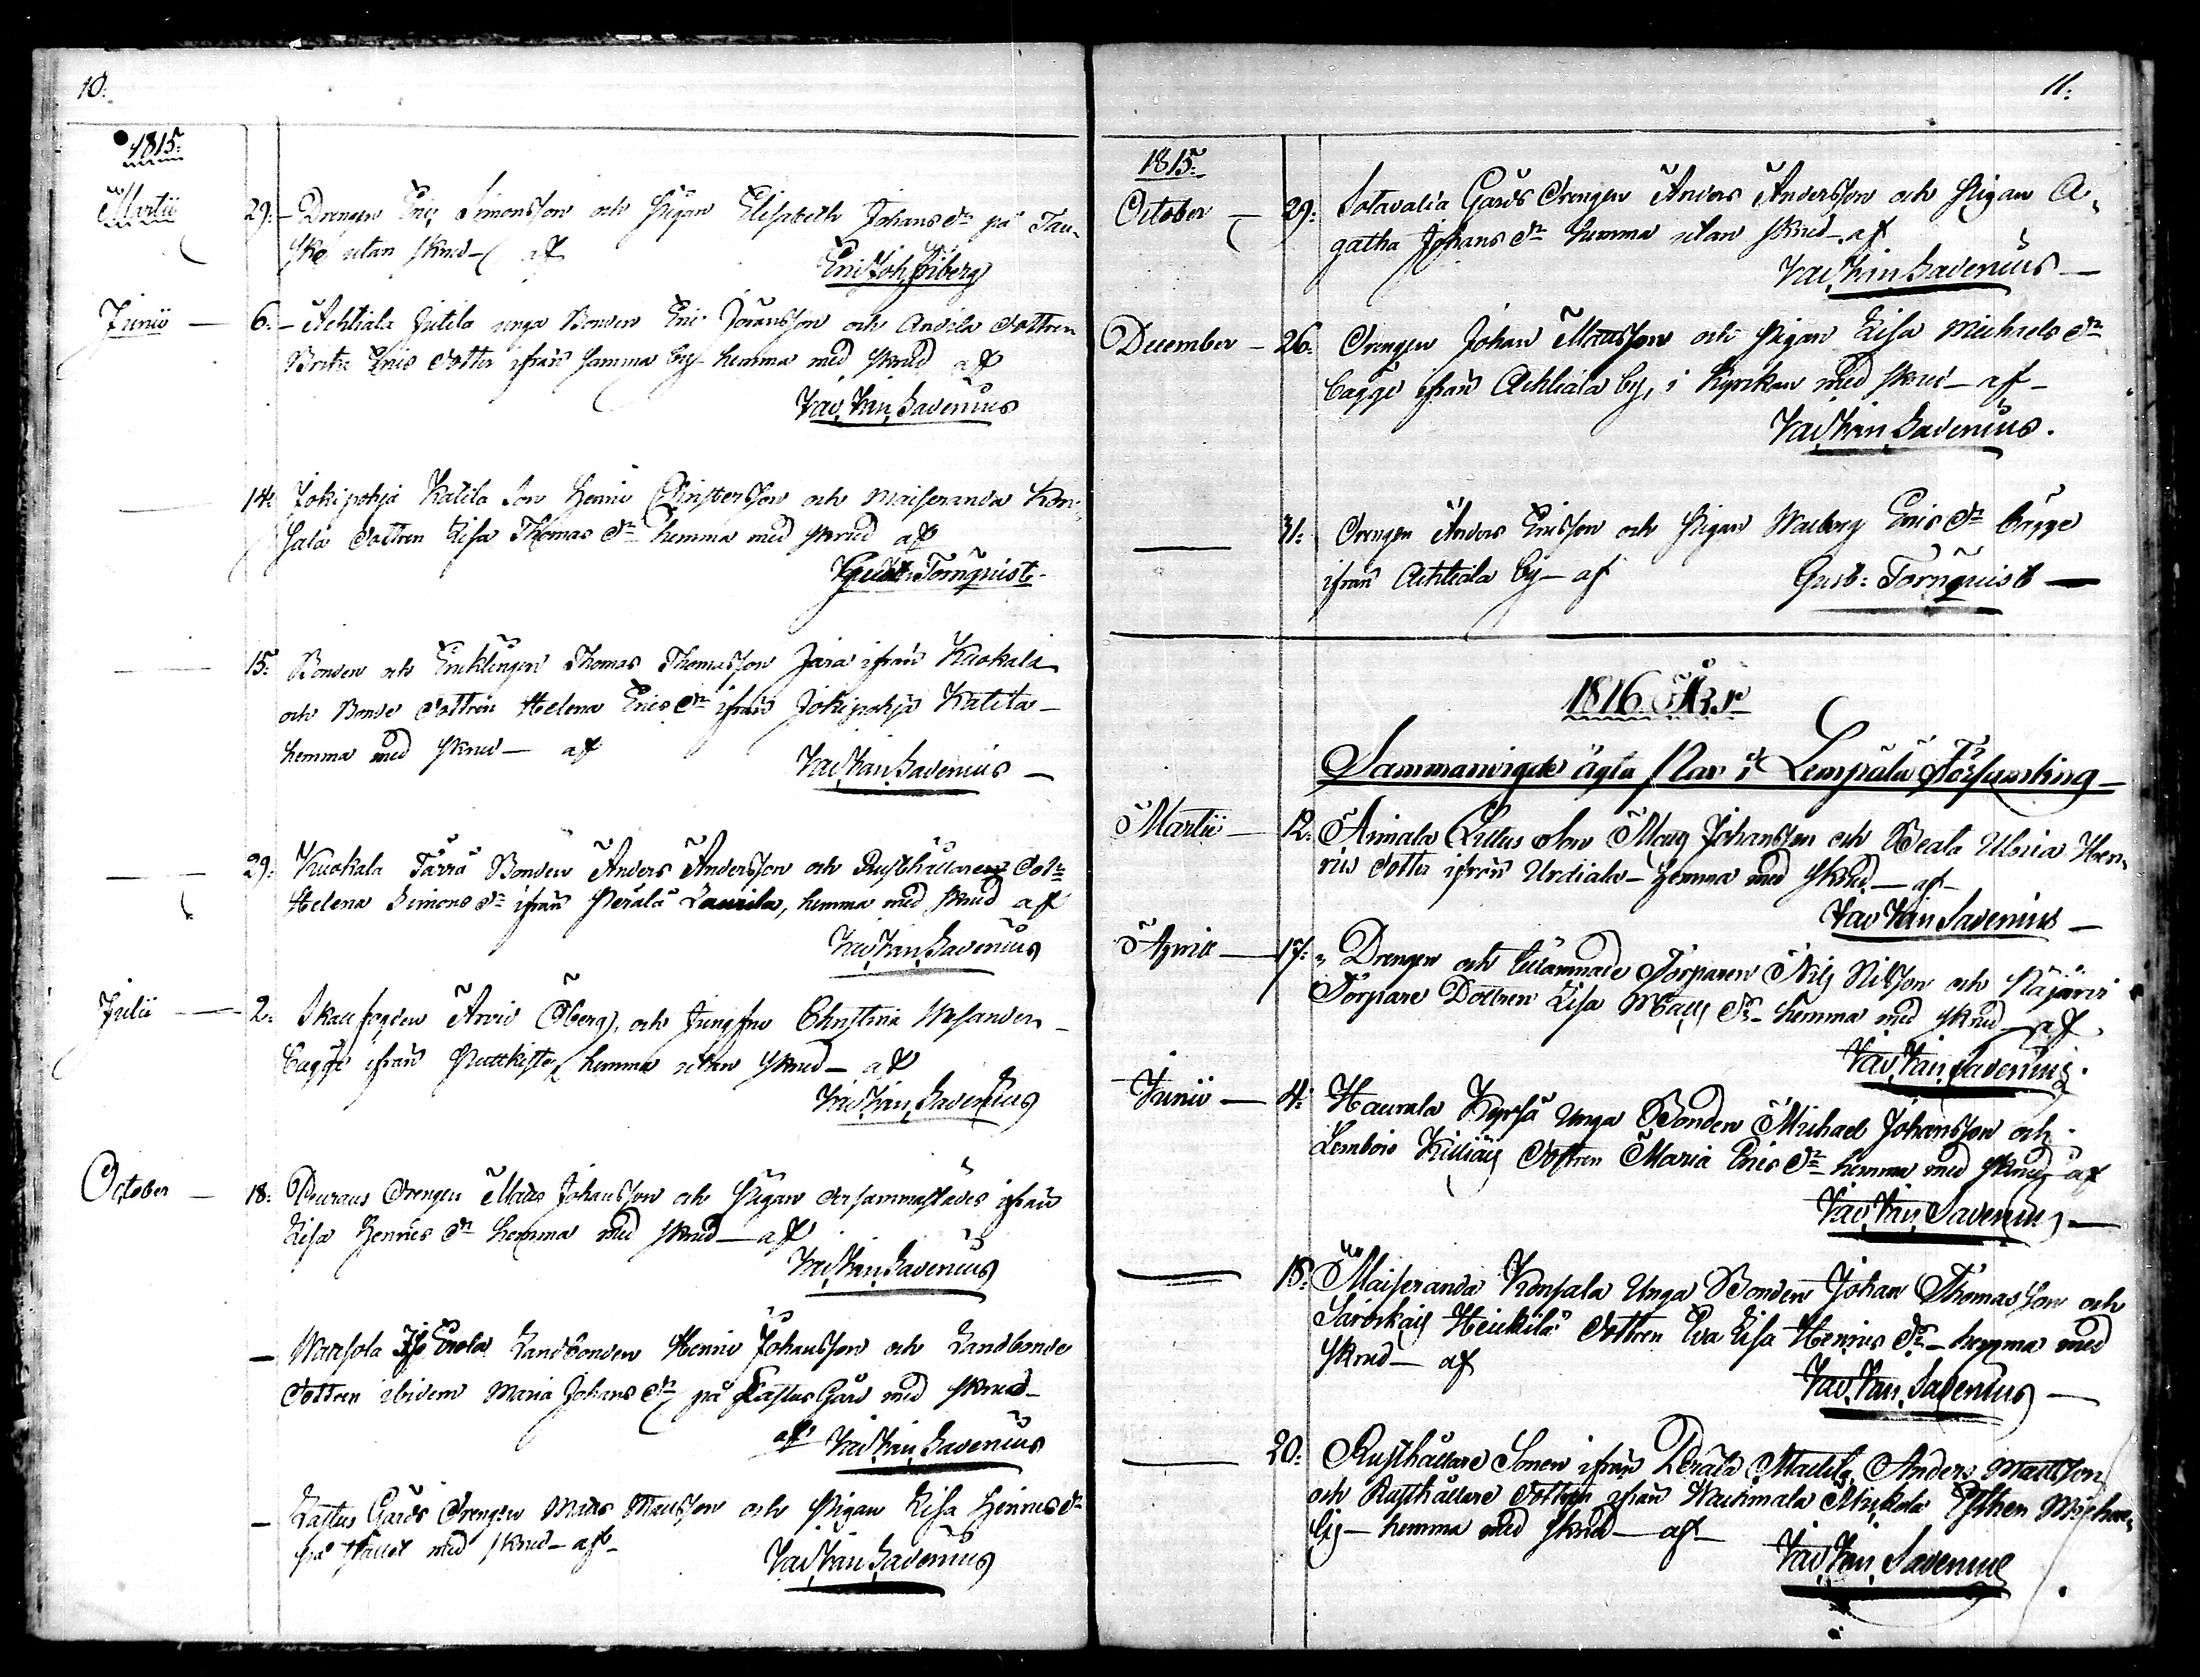 10.
1815.
Martii 29. Drengen Eric Simonsson och Pigan Elisabeth Johans dr på Tau-
sko utan skrud af
Eric Joh Siberg
Junii 6. Achtiala Jutila unga Bonden Eric Jöransson och Anvila dottren
Brita Erics dotter ifrån samma by hemma med skrud af
Vac. Savenius
14. Jokipohja Katila Son Henric Christersson och Maiseranda Kon-
sala dottren Lisa Thomas dr hemma med skrud af
Törnquist
15. Bonden och Encklingen Thomas Thomasson Jära ifrån Kuokala
och Bonde dottren Helena Erics dr ifrån Jokipohja Katila
hemma med skrud af
Savenius
29. Kuokala Tärrä Bonden Anders Andersson och Rusthållarens dotr
Helena Simons dr ifrån Perälä Laurila, hemma med skrud af
Savenius
Julii 2. Skallfogden Arvid Öberg, och Jungfru Christina Wesander
bägge ifrån hemma utan skrud af
Savenius
October 18. Drengen Matts Johansson och Pigan dersammastädes ifrån
Lisa Henrics dr hemma med skrud af
Savenius
Landbonden Henric Johansson och Landbonde
dottren ibidem Maria Johans dr på Lastus Gård med skrud
af Savenius
Lastus Gårds Drengen Matts Mattsson och Pigan Lisa Henrics dr
på stället med skrud af
Savenius
11.
1815.
October 29. Sotavalla Gårds Drengen Anders Andersson och Pigan A-
gatha Johans dr hemma utan skrud af
Savenius
December 26. Drengen Johan Mattsson och Pigan Lisa Michels dr
bägge ifrån Achtiala by, i Kyrckan med skrud af
Savenius.
31. Drengen Anders Ericsson och Pigan Walborg Erics dr bägge
ifrån Achtiala by af Gust: Törnquist
1816 Års
Sammanvigde ägta Par i Lempälä Församling
Martii 12. Aimala Lillus Son Matts Johansson och Beata Ulrica Hen-
rics dotter ifrån Urdiala hemma med skrud af
Savenius
April 17. Drengen och tillämnade Torparen Nils Nilsson och Pääjärvi
Torpare Dottren Lisa Matts dr hemma med skrud af
Savenius.
Junii 4. Haurala Kyrsä Unga Bonden Michael Johansson och
Lembois Killiais dottren Maria Erics dr hemma med skrud af
Savenius
18. Maiseranda Konsala Unga Bonden Johan Thomasson och
Säroskais Heickilä dottren Eva Lisa Henrics dr hemma med
skrud af
Savenius
20. Rusthållare Sonen ifrån Perälä Mattila Anders Mattsson
och Rusthållare dottren ifrån Michola Esther Michae-
lis hemma med skrud af
Savenius